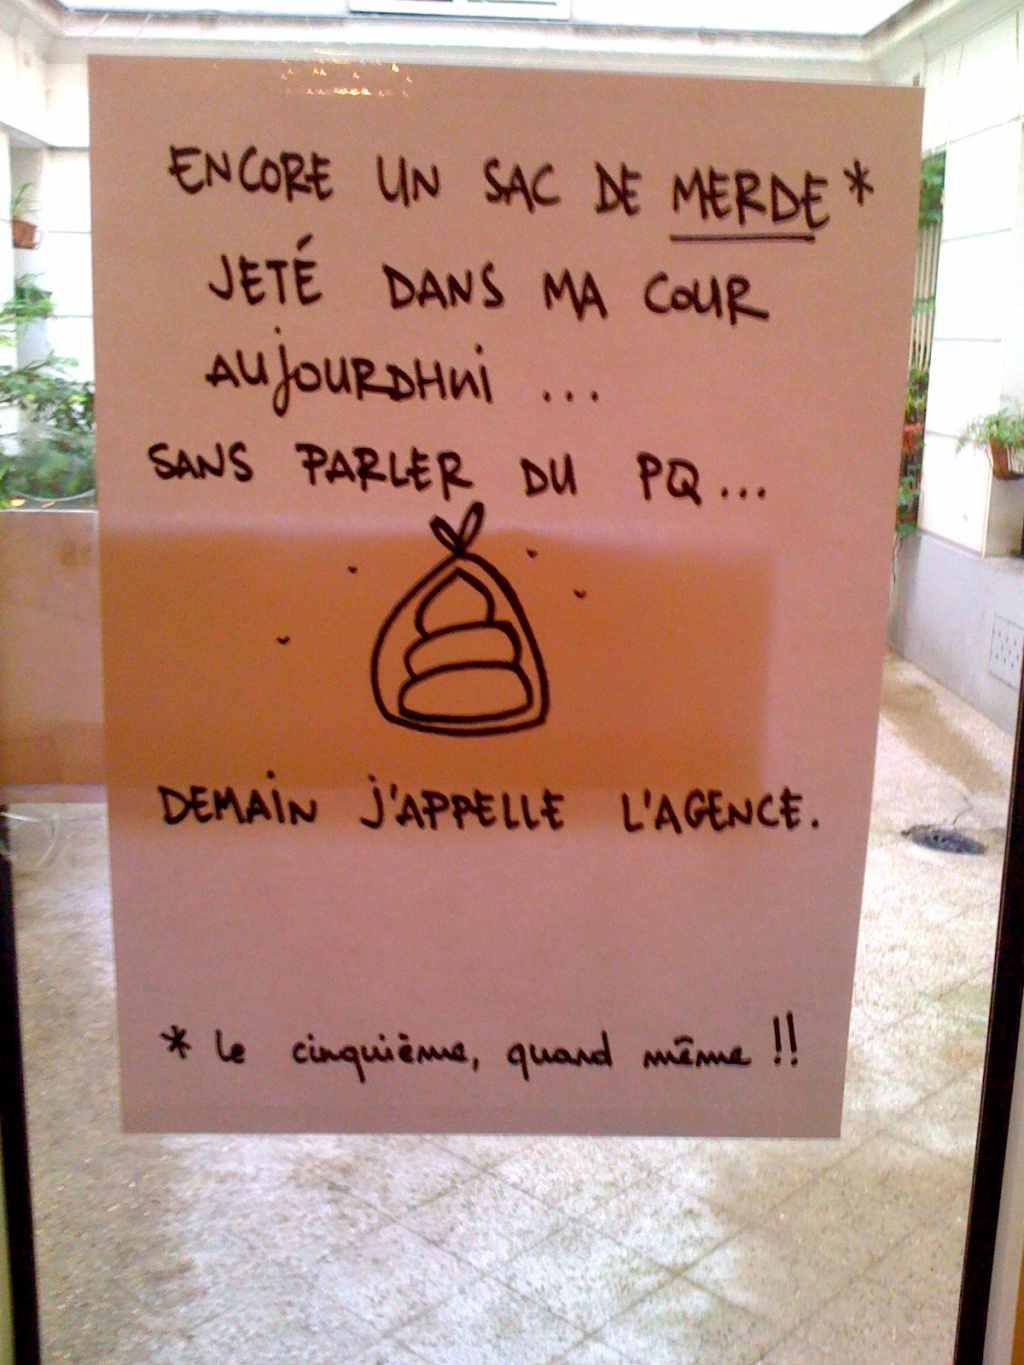 ENCORE UN SAC DE MERDE*
JETÉ DANS MA COUR
AUJOURDHUI ...
SANS PARLER DU PQ...
DEMAIN J'APPELLE L'AGENCE.
* le cinquième, quand même !!